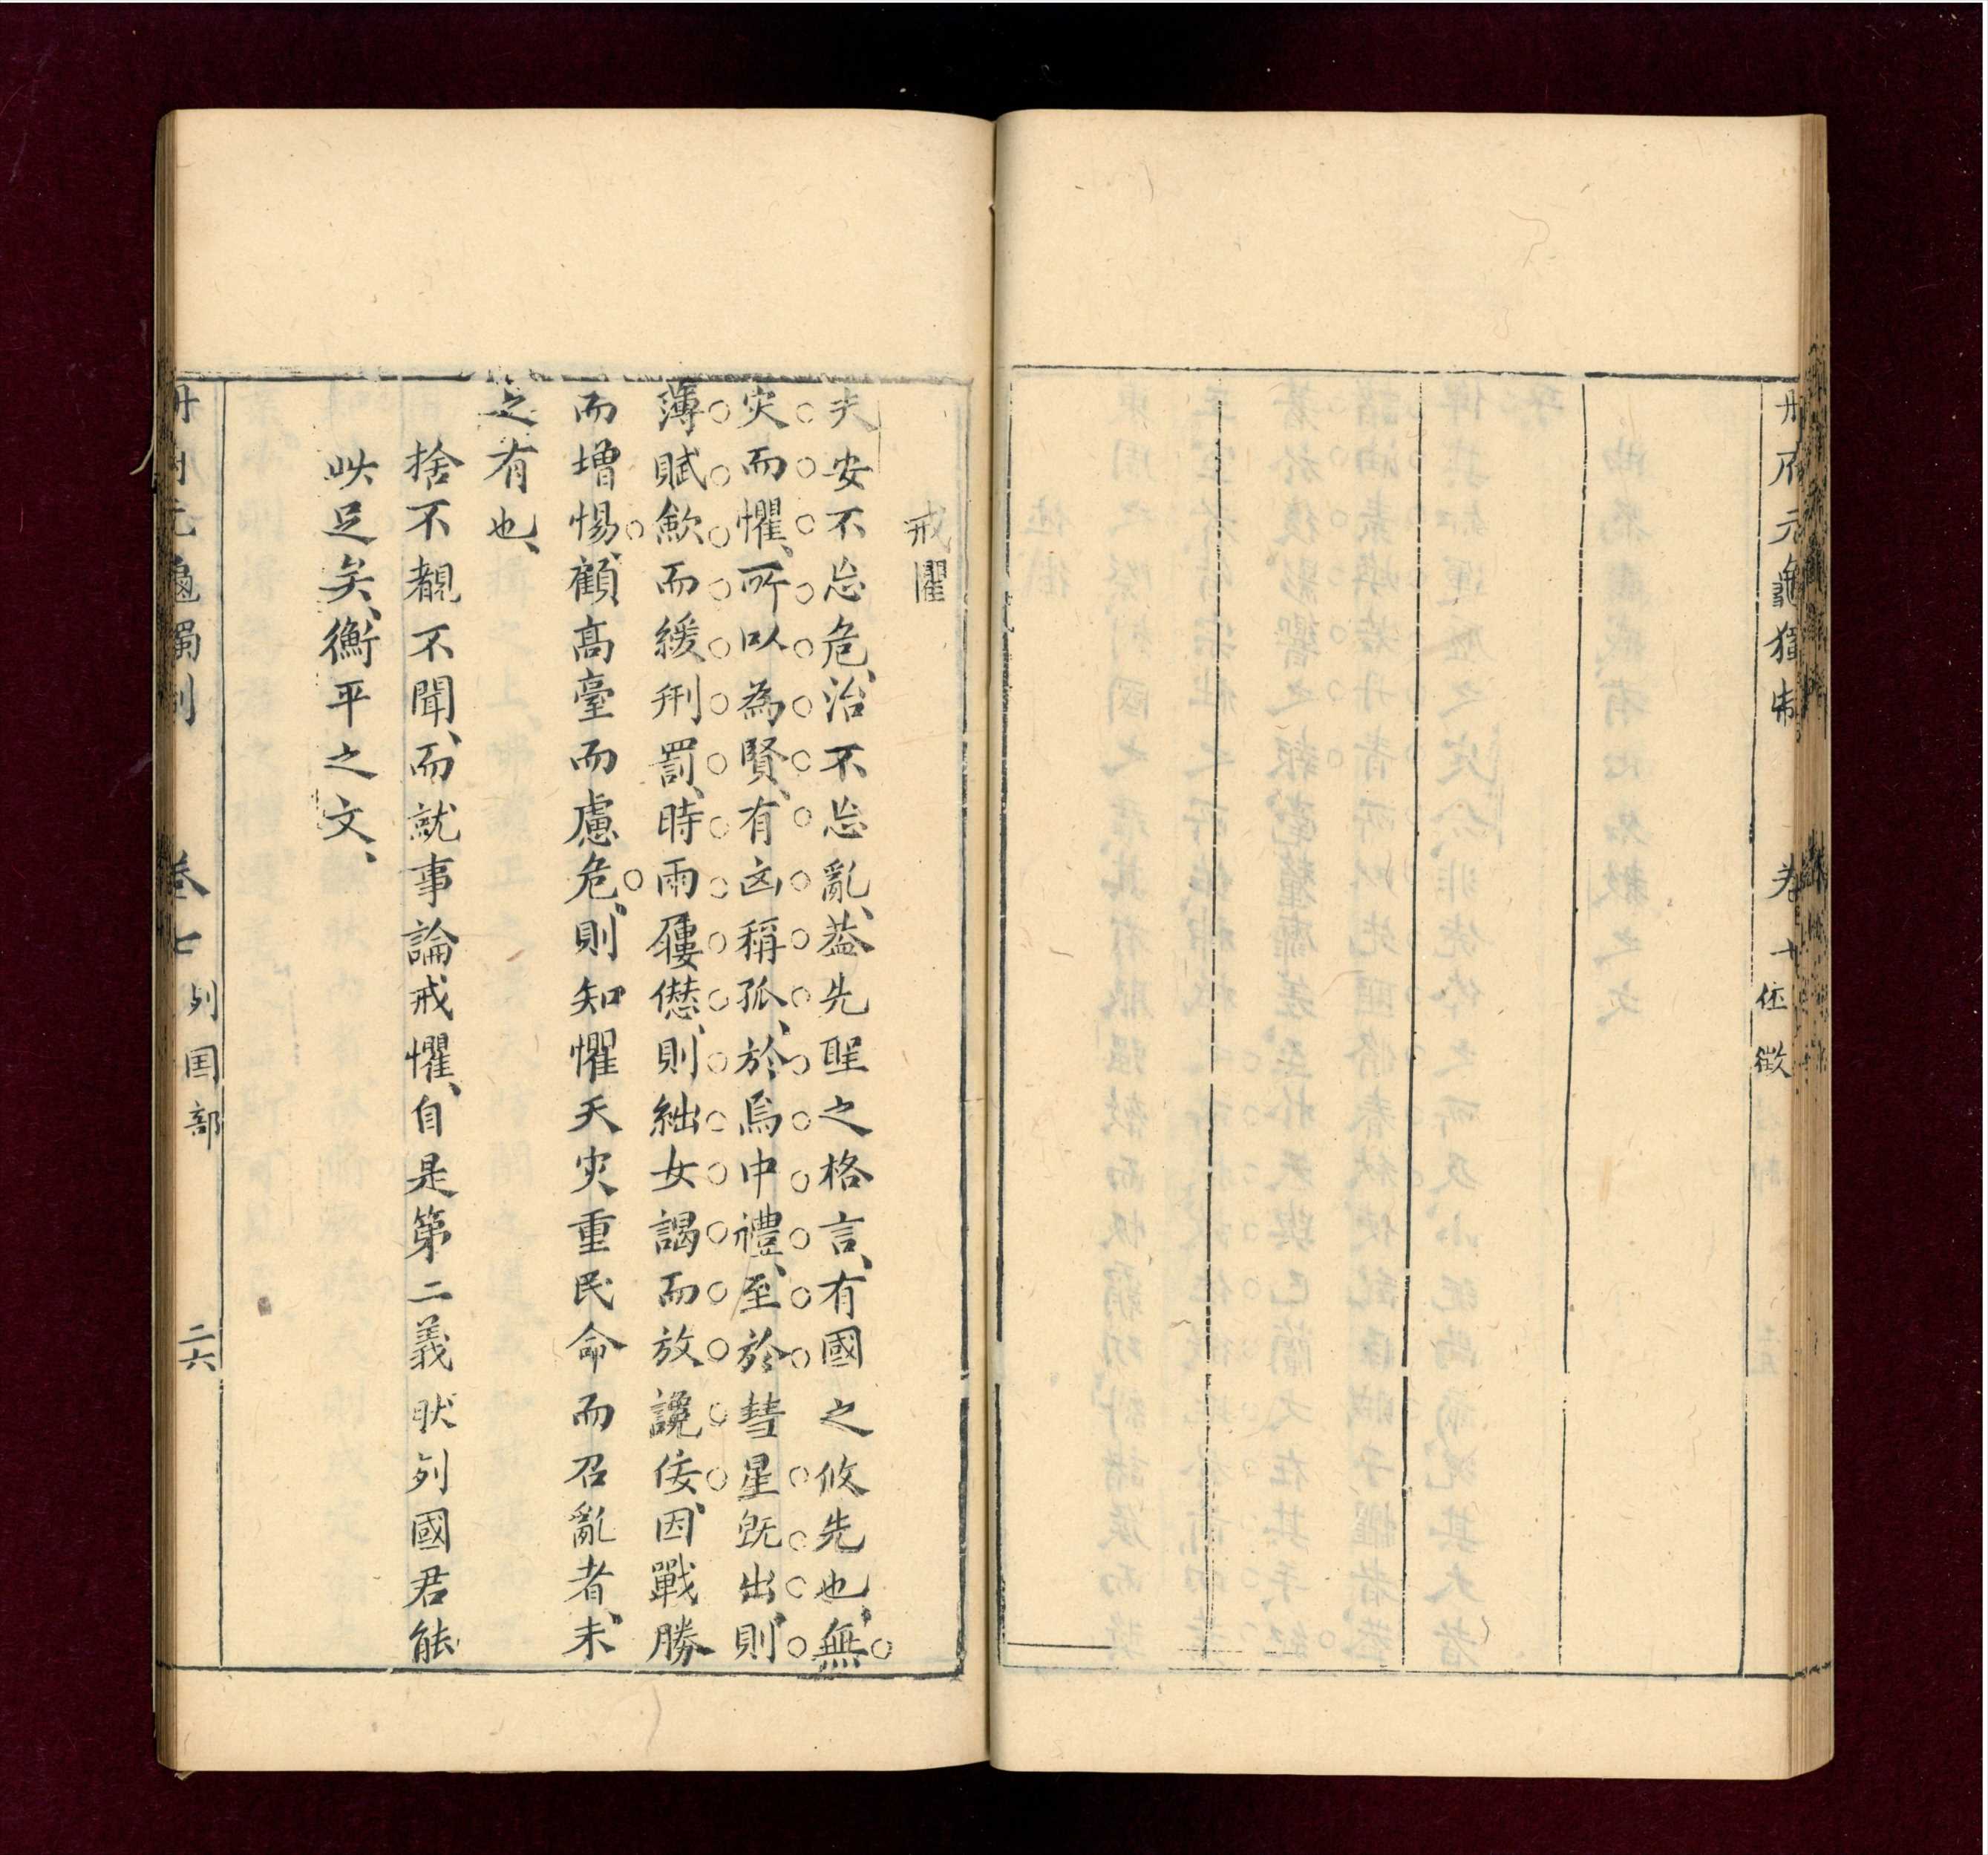 冊府元龜獨制 卷七 咎徵
戒懼
夫安不忘危、治不忘亂、葢先聖之格言、有國之攸先也、無
灾而懼、所以為賢、有凶稱孤、於焉中禮、至於彗星旣出、則
薄賦歛而緩刑罰、時雨屢愆、則絀女謁而放讒佞、因戰勝
而增惕、顧高臺而慮危、則知懼天灾重民命而召亂者、未
之有也、
捨不覩不聞、而就事論戒懼、自是第二義狀列國君能
如此足矣、衡平之文、
冊府元龜獨制 卷七 列囯部 二六